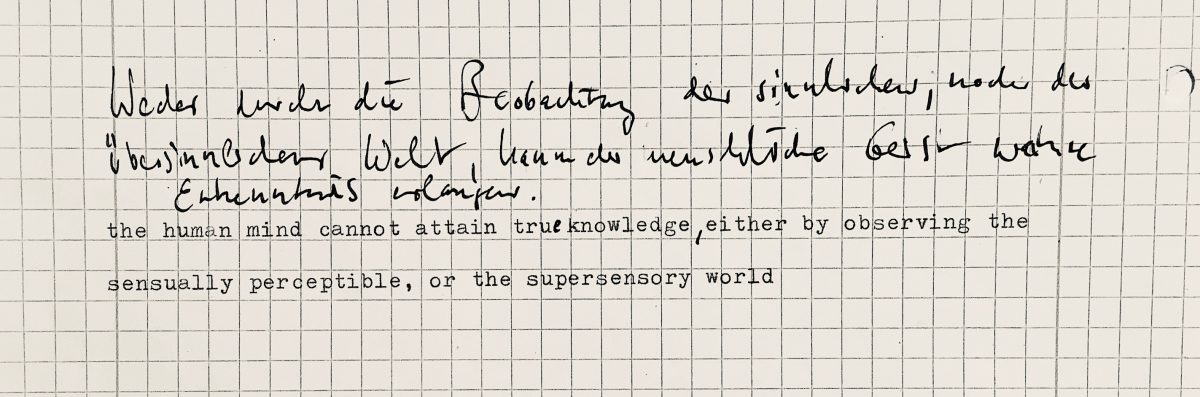 Weder durch die Beobachtung der sinnlichen, noch der
übersinnlichen Welt, kann der menschliche Geist wahre
Erkenntnis erlangen.
the human mind cannot attain true knowledge, either by observing the
sensually perceptible, or the supersensory world